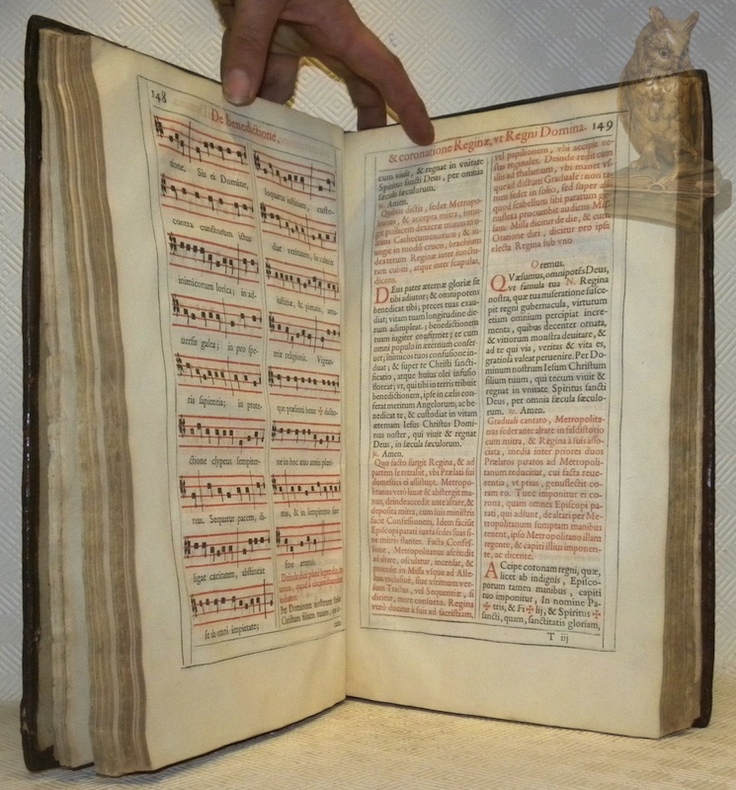 148
De benedictione,
ctione. Sis ei Domine,
contra cunctorum ictus
inimicorum lorica; in ad-
uersis galea; in pro spe-
ris sapientia; in prote-
ctione clypeus sempiter-
nus. Sequatur pacem, di-
ligat caritatem, abstineat
se ab omni impietate;
loquatur iustitiam, custo-
diat veritatem,
iustitiæ, & pietatis, ama-
trix religionis. Vigeat-
que præsenti bene ✠ dictio-
ne in hoc æuo annis pluri-
mis, & in sempiterno sine
fine æterno.
Per Dominum nostrum Iesum
Christum filium tuum,
& coronatione Reginæ, vt Regni Domina. 149
cum viuit, & regnat in vnitate
Spiritus sancti Deus, per omnia
sæcula sæculorum.
℟. Amen.
Quibus dictis, sedet Metropo-
litanus, & accepta mitra, intin-
git pollicem dexteræ manus in o-
leum Cathecumenorum, & in-
ungit in modum crucis, brachium
dexterum Reginæ inter iunctu-
ram cubiti, atque inter scapulas,
dicens.
DEus pater æternæ gloriæ sit
tibi adiutor; & omnipotens
benedicat tibi; preces tuas exau-
diat; vitam tuam longitudine die-
rum adimpleat; benedictionem
tuam iugiter confirmet; te cum
omni populo in æternum conser-
uet; inimicos tuos confusione in-
duat; & super te Christi sancti-
ficatio, atque huius olei infusio
floreat; vt, qui tibi in terris tribuit
benedictionem, ipse in cælis con-
ferat meritum Angelorum; ac be-
nedicat te, & custodiat in vitam
æternam Iesus Christus Domi-
nus noster, qui viuit & regnat
Deus, in sæcula sæculorum.
℟. Amen.
Quo facto surgit Regina, & ad
partem se retrahit, vbi Prælati sui
domestici ei assistunt. Metropo-
litanus verò lauat & abstergit ma-
nus, deinde accedit ante altare, &
deposita mitra, cum suis ministris
facit Confessionem. Idem faciunt
Episcopi parati iuxta sedes suas si-
ne mitris stantes. Facta Confes-
sione, Metropolitanus ascendit
ad altare, osculatur, incensat, &
procedit in Missa vsque ad Alle-
luia exclusiuè, siue vltimum ver-
sum Tractus, vel Sequentiæ, si
dicitur, more consueto. Regina
verò ducitur à suis ad sacristiam,
vel papilionem, vbi accipit ve-
stes reginales. Deinde redit cum
suis ad thalamum, vbi manet vs-
que ad dictum Graduale: non ta-
men sedet in solio, sed super ali-
quod scabellum sibi paratum
Missa dicitur de die, & cum
Oratione diei, dicitur pro ipsa
electa Regina sub vno
Oremus.
QVæsumus, omnipotés Deus,
vt famula tua N. Regina
nostra, quæ tua miseratione susce-
pit regni gubernacula, virtutum
etiam omnium percipiat incre-
menta, quibus decenter ornata,
& vitiorum monstra deuitare, &
ad te qui via, veritas & vita es,
gratiosa valeat peruenire. Per Do-
minum nostrum Iesum Christum
filium tuum, qui tecum viuit &
regnat in vnitate Spiritus sancti
Deus, per omnia sæcula sæculo-
rum. ℟. Amen.
Graduali cantato, Metropolita-
nus sedet ante altare in faldistorio
cum mitra, & Regina à suis asso-
ciata, media inter priores duos
Prælatos paratos ad Metropoli-
tanum reducitur, cui facta reue-
rentia, vt prius, genuflectit co-
ram eo. Tunc imponitur ei co-
rona, quam omnes Episcopi pa-
rati, qui adsunt, de altari per Me-
tropolitanum sumptam manibus
tenent, ipso Metropolitano illam
regente, & capiti illius imponen-
te, ac dicente.
ACcipe coronam regni, quæ,
licet ab indignis, Episco-
porum tamen manibus, capiti
tuo imponitur, In nomine Pa-
✠tris, & Fi✠lij, & Spiritus✠
sancti, quam, sanctitatis gloriam,
T iij